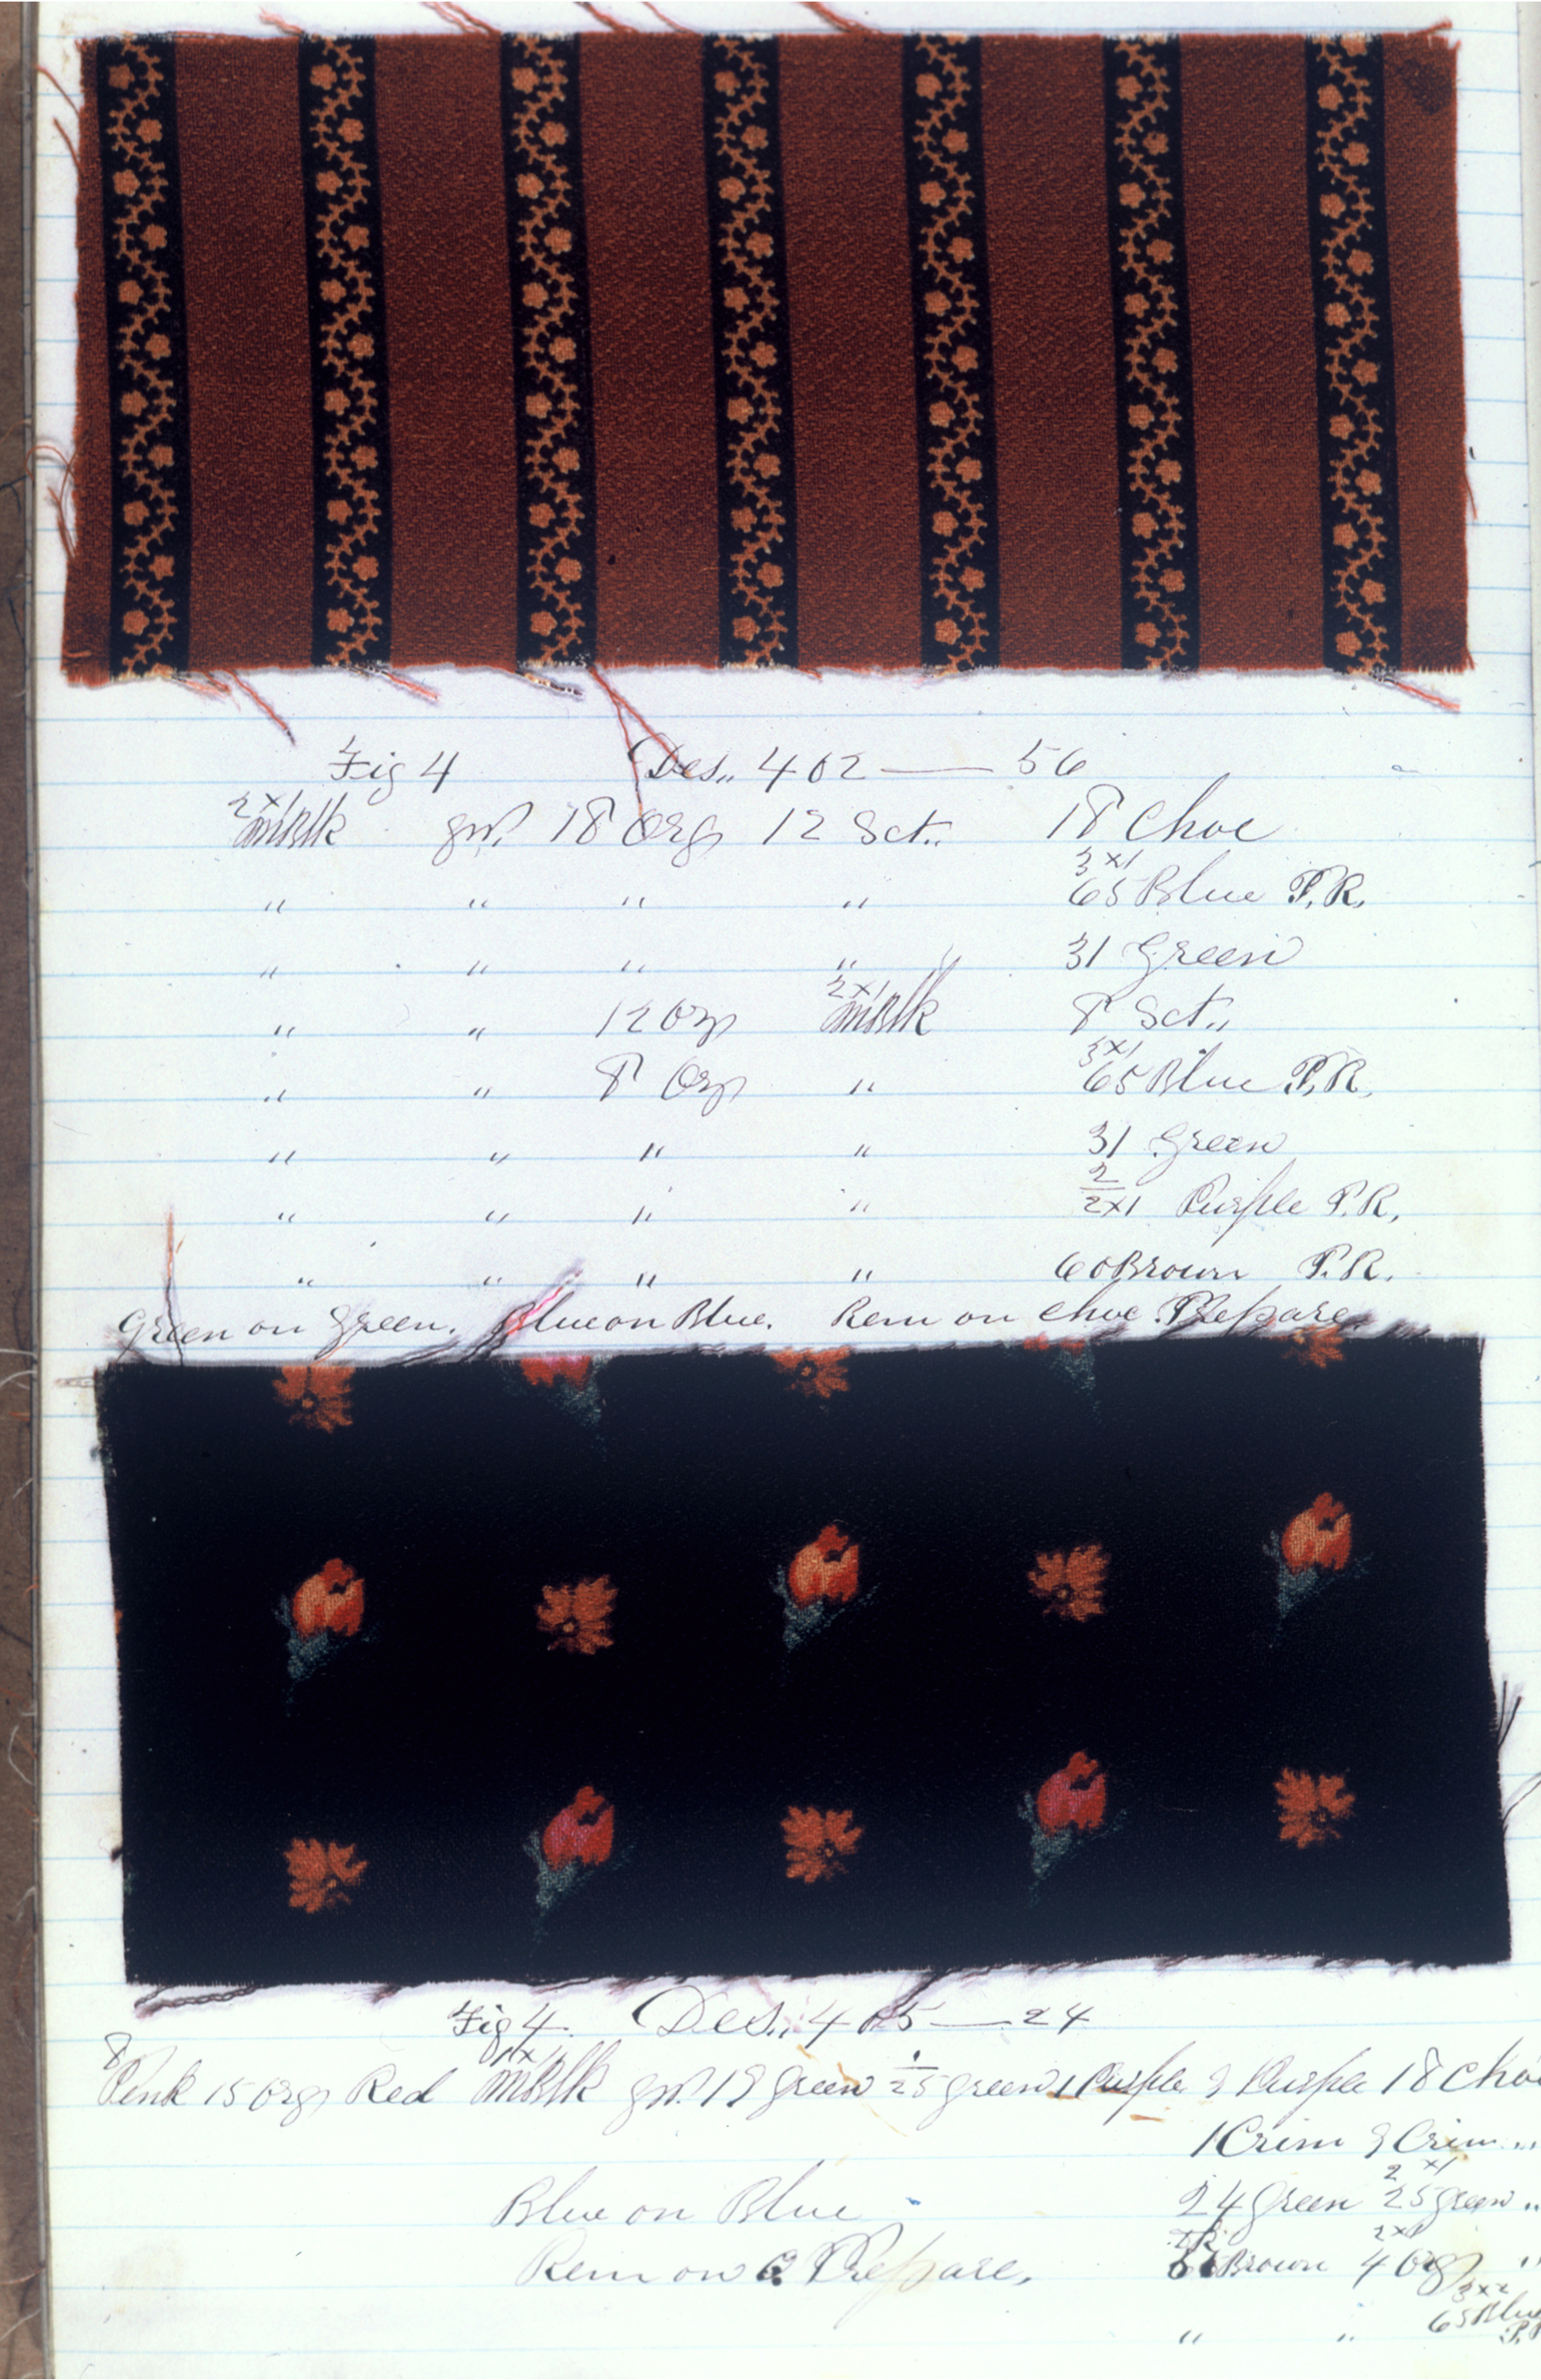 Fig 4 Des,, 402 — 56
2x1 MBlk gr. 18 Org 12 Sct,, 18 Choc
" " " " 3x1 65 Blue P.R.
" " " " 31 Green
" " 12 Org 2x1 MBlk 8 Sct,,
" " 8 Org " 3x1 65 Blue P.R.
" " " " 31 Green
" " " " 2/2x1 Purple P.R.
" " " " 60 Brown P.R.
Green on Green. Blue on Blue. Rem on Choc. Prepare.
Fig 4. Des,, 405 — 24
8 Pink 15 Org Red 1x1 MBlk gr. 19 Green 1/25 Green 1 Purple 9 Purple 18 Choc
1 Crim 9 Crim ,,
Blue on Blue 24 Green 2x1 25 Green ,,
Rem on C. Prepare. Brown 2x1 4 Org "
" " 3x2 65 Blue P.R